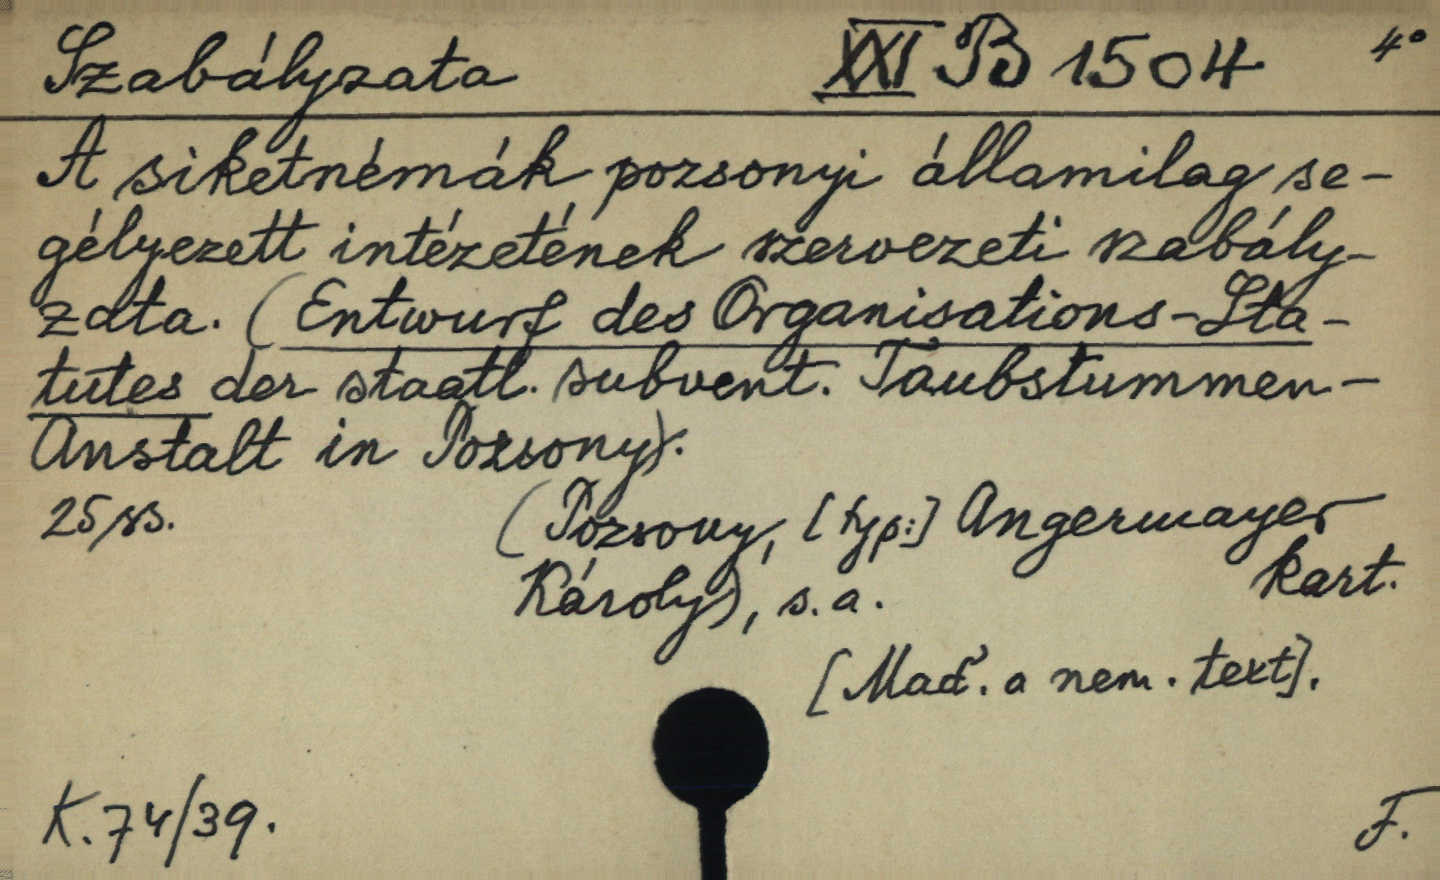 Szabályzata XXI B 1504 4°
A siketnémák pozsonyi államilag se-
gélyezett intézetének szervezeti szabály-
zata. (Entwurf des Organisations-Sta-
tutes der staatl. subvent. Taubstummen-
Anstalt in Pozsony).
25 ss. (Pozsony, [typ:] Angermayer
Károly), s. a. kart.
[Maď. a nem. text].
K. 74/39. F.